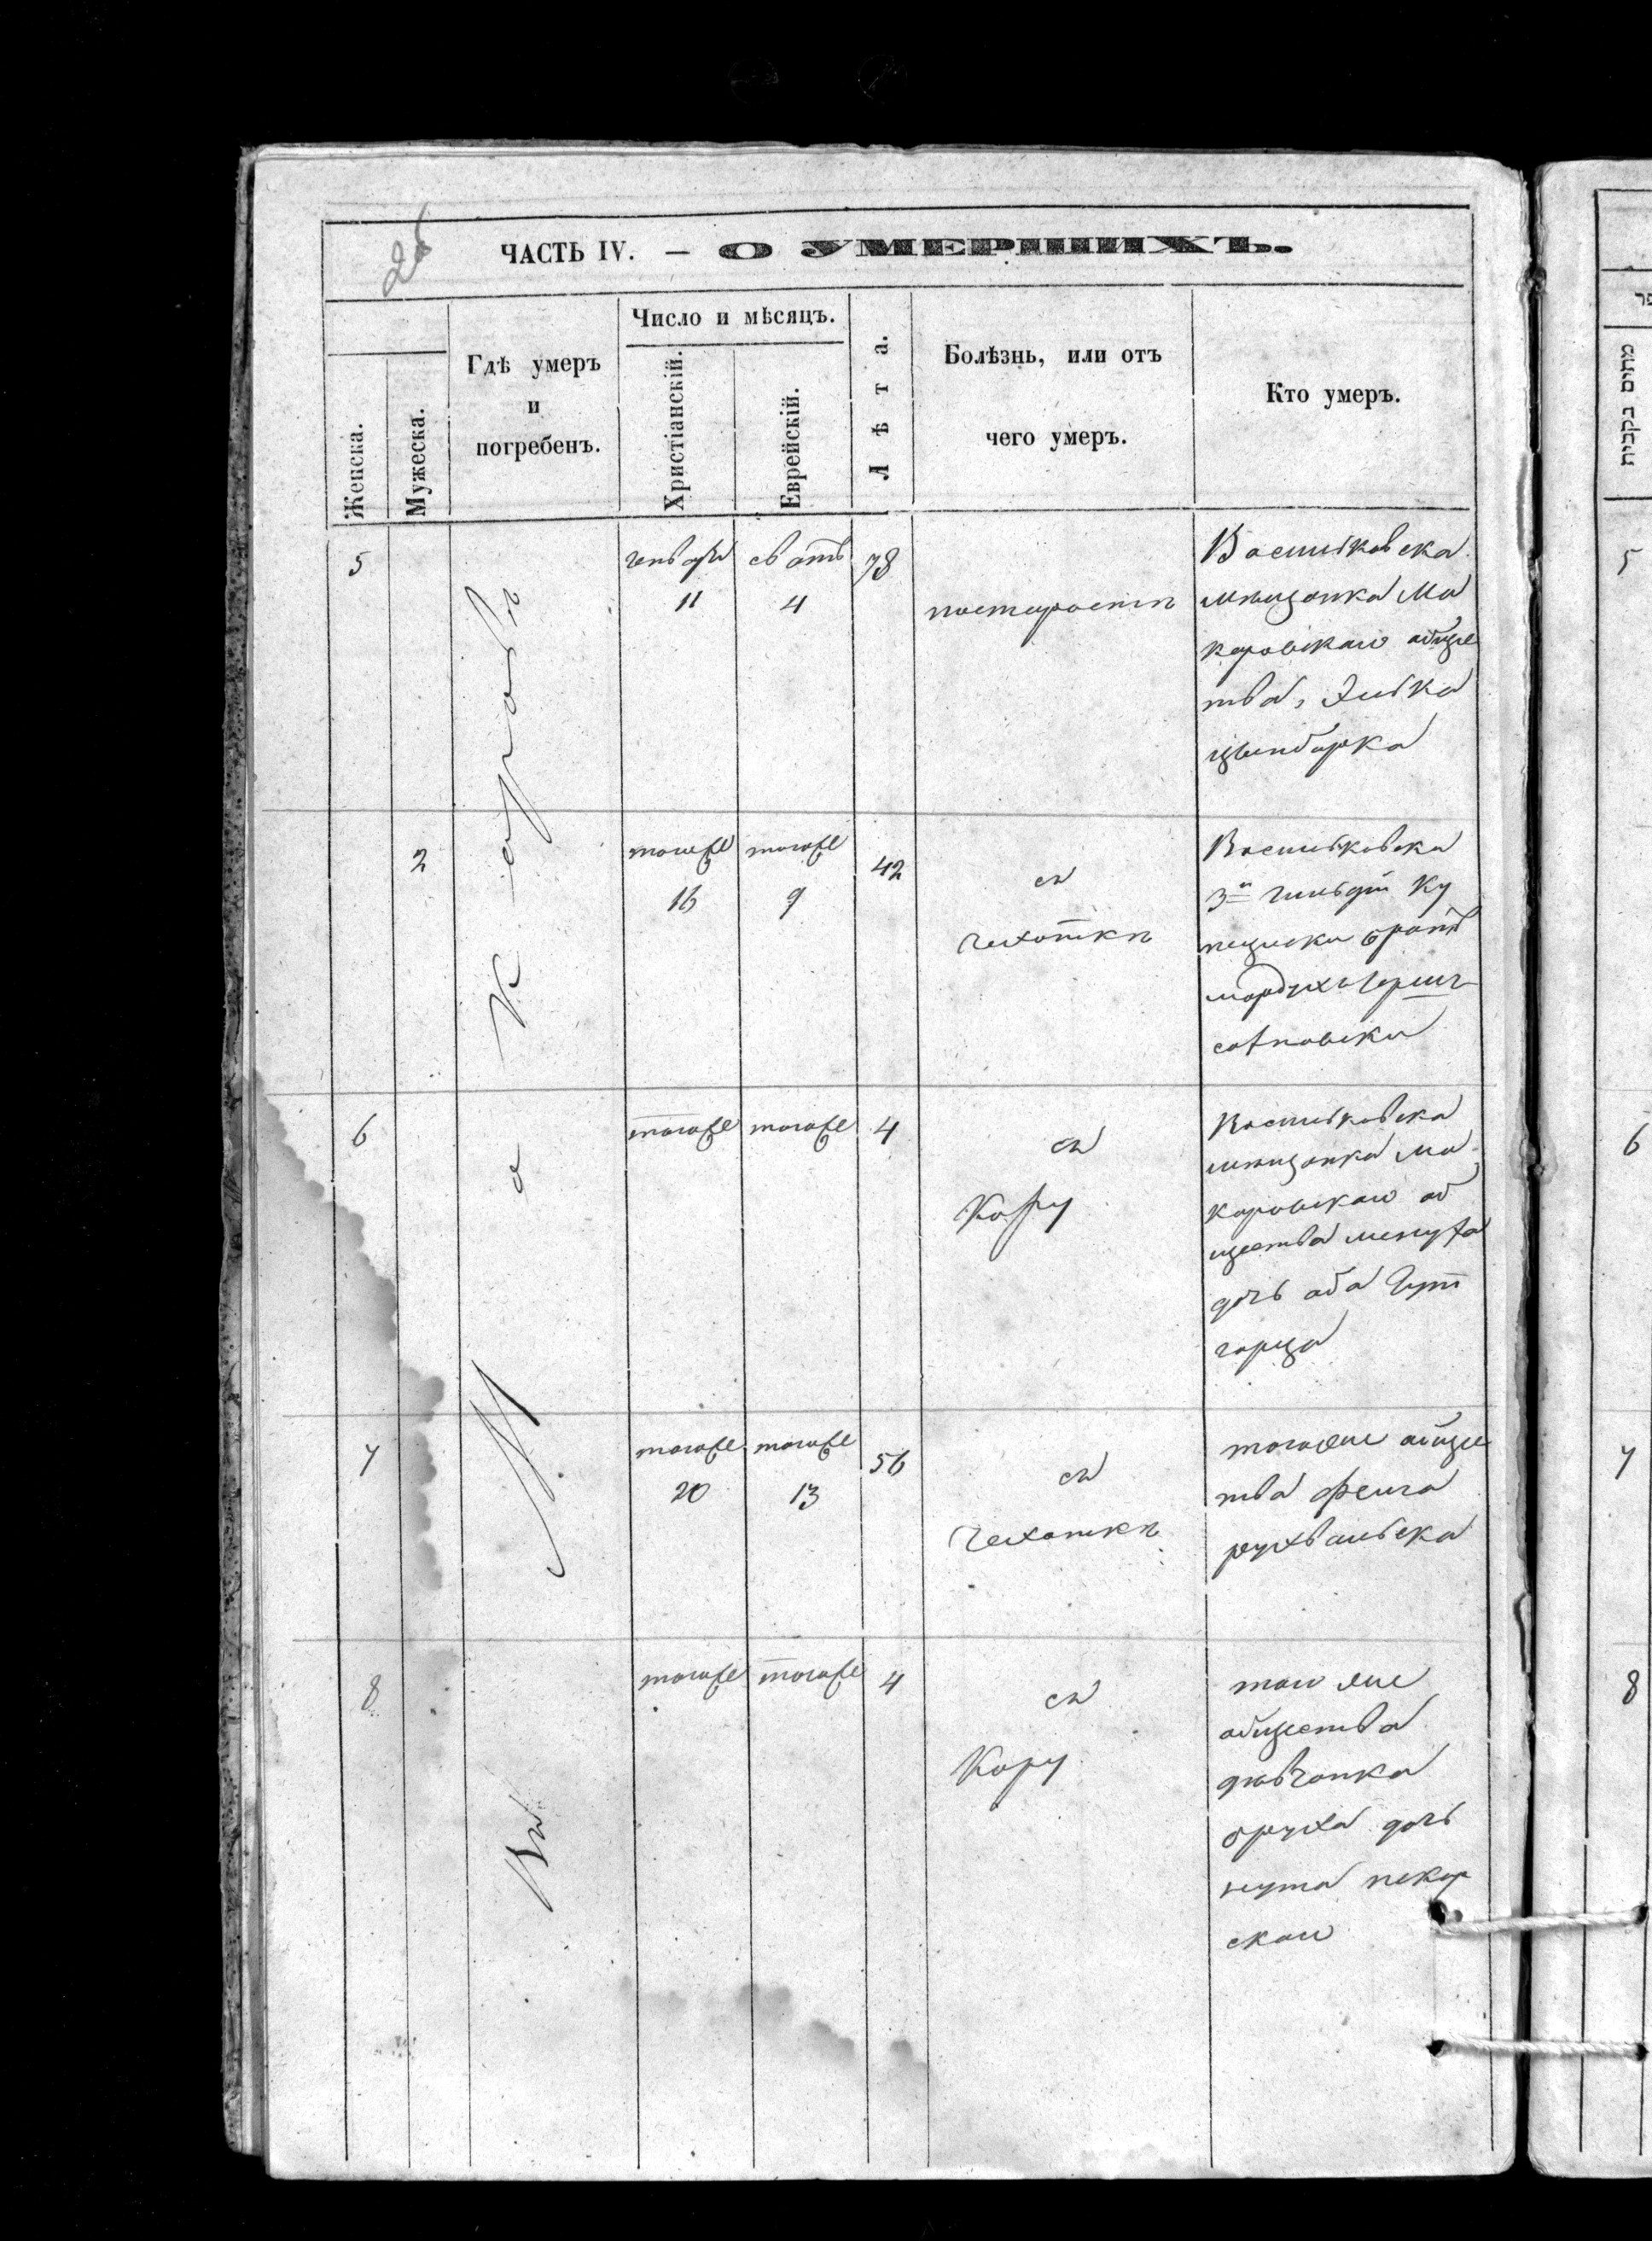 26
ЧАСТЬ IV. — О УМЕРШИХЪ.
Женска.
Мужеска.
Гдѣ умеръ
и
погребенъ.
Число и мѣсяцъ.
Христіанскій.
Еврейскій.
Лѣта.
Болѣзнь, или отъ
чего умеръ.
Кто умеръ.
Въ Макаровѣ
5
генваря
11
сватъ
4
78
постарости
Васильковска
мѣщанка Ма
каровскаго обще
тва, Элька
цымбарка
2
тогоже
16
тогоже
9
42
съ
чехотки
Васильковска
3й гильдіи ку
пециски братъ
мордухъ Герш
6
тогоже
тогоже
4
съ
Кору
Васильковска
мѣщанка Ма
каровскаго об
щества менуха
дочь аба Гут
гарца
7
тогоже
20
тогоже
13
56
съ
чехотки
тогоже обще
тва Фейга
8
тогоже
тогоже
4
съ
Кору
того же
общества
дѣвчонка
бруха дочь
нута пекар
ская
פר
מתים נקבות
5
6
7
8